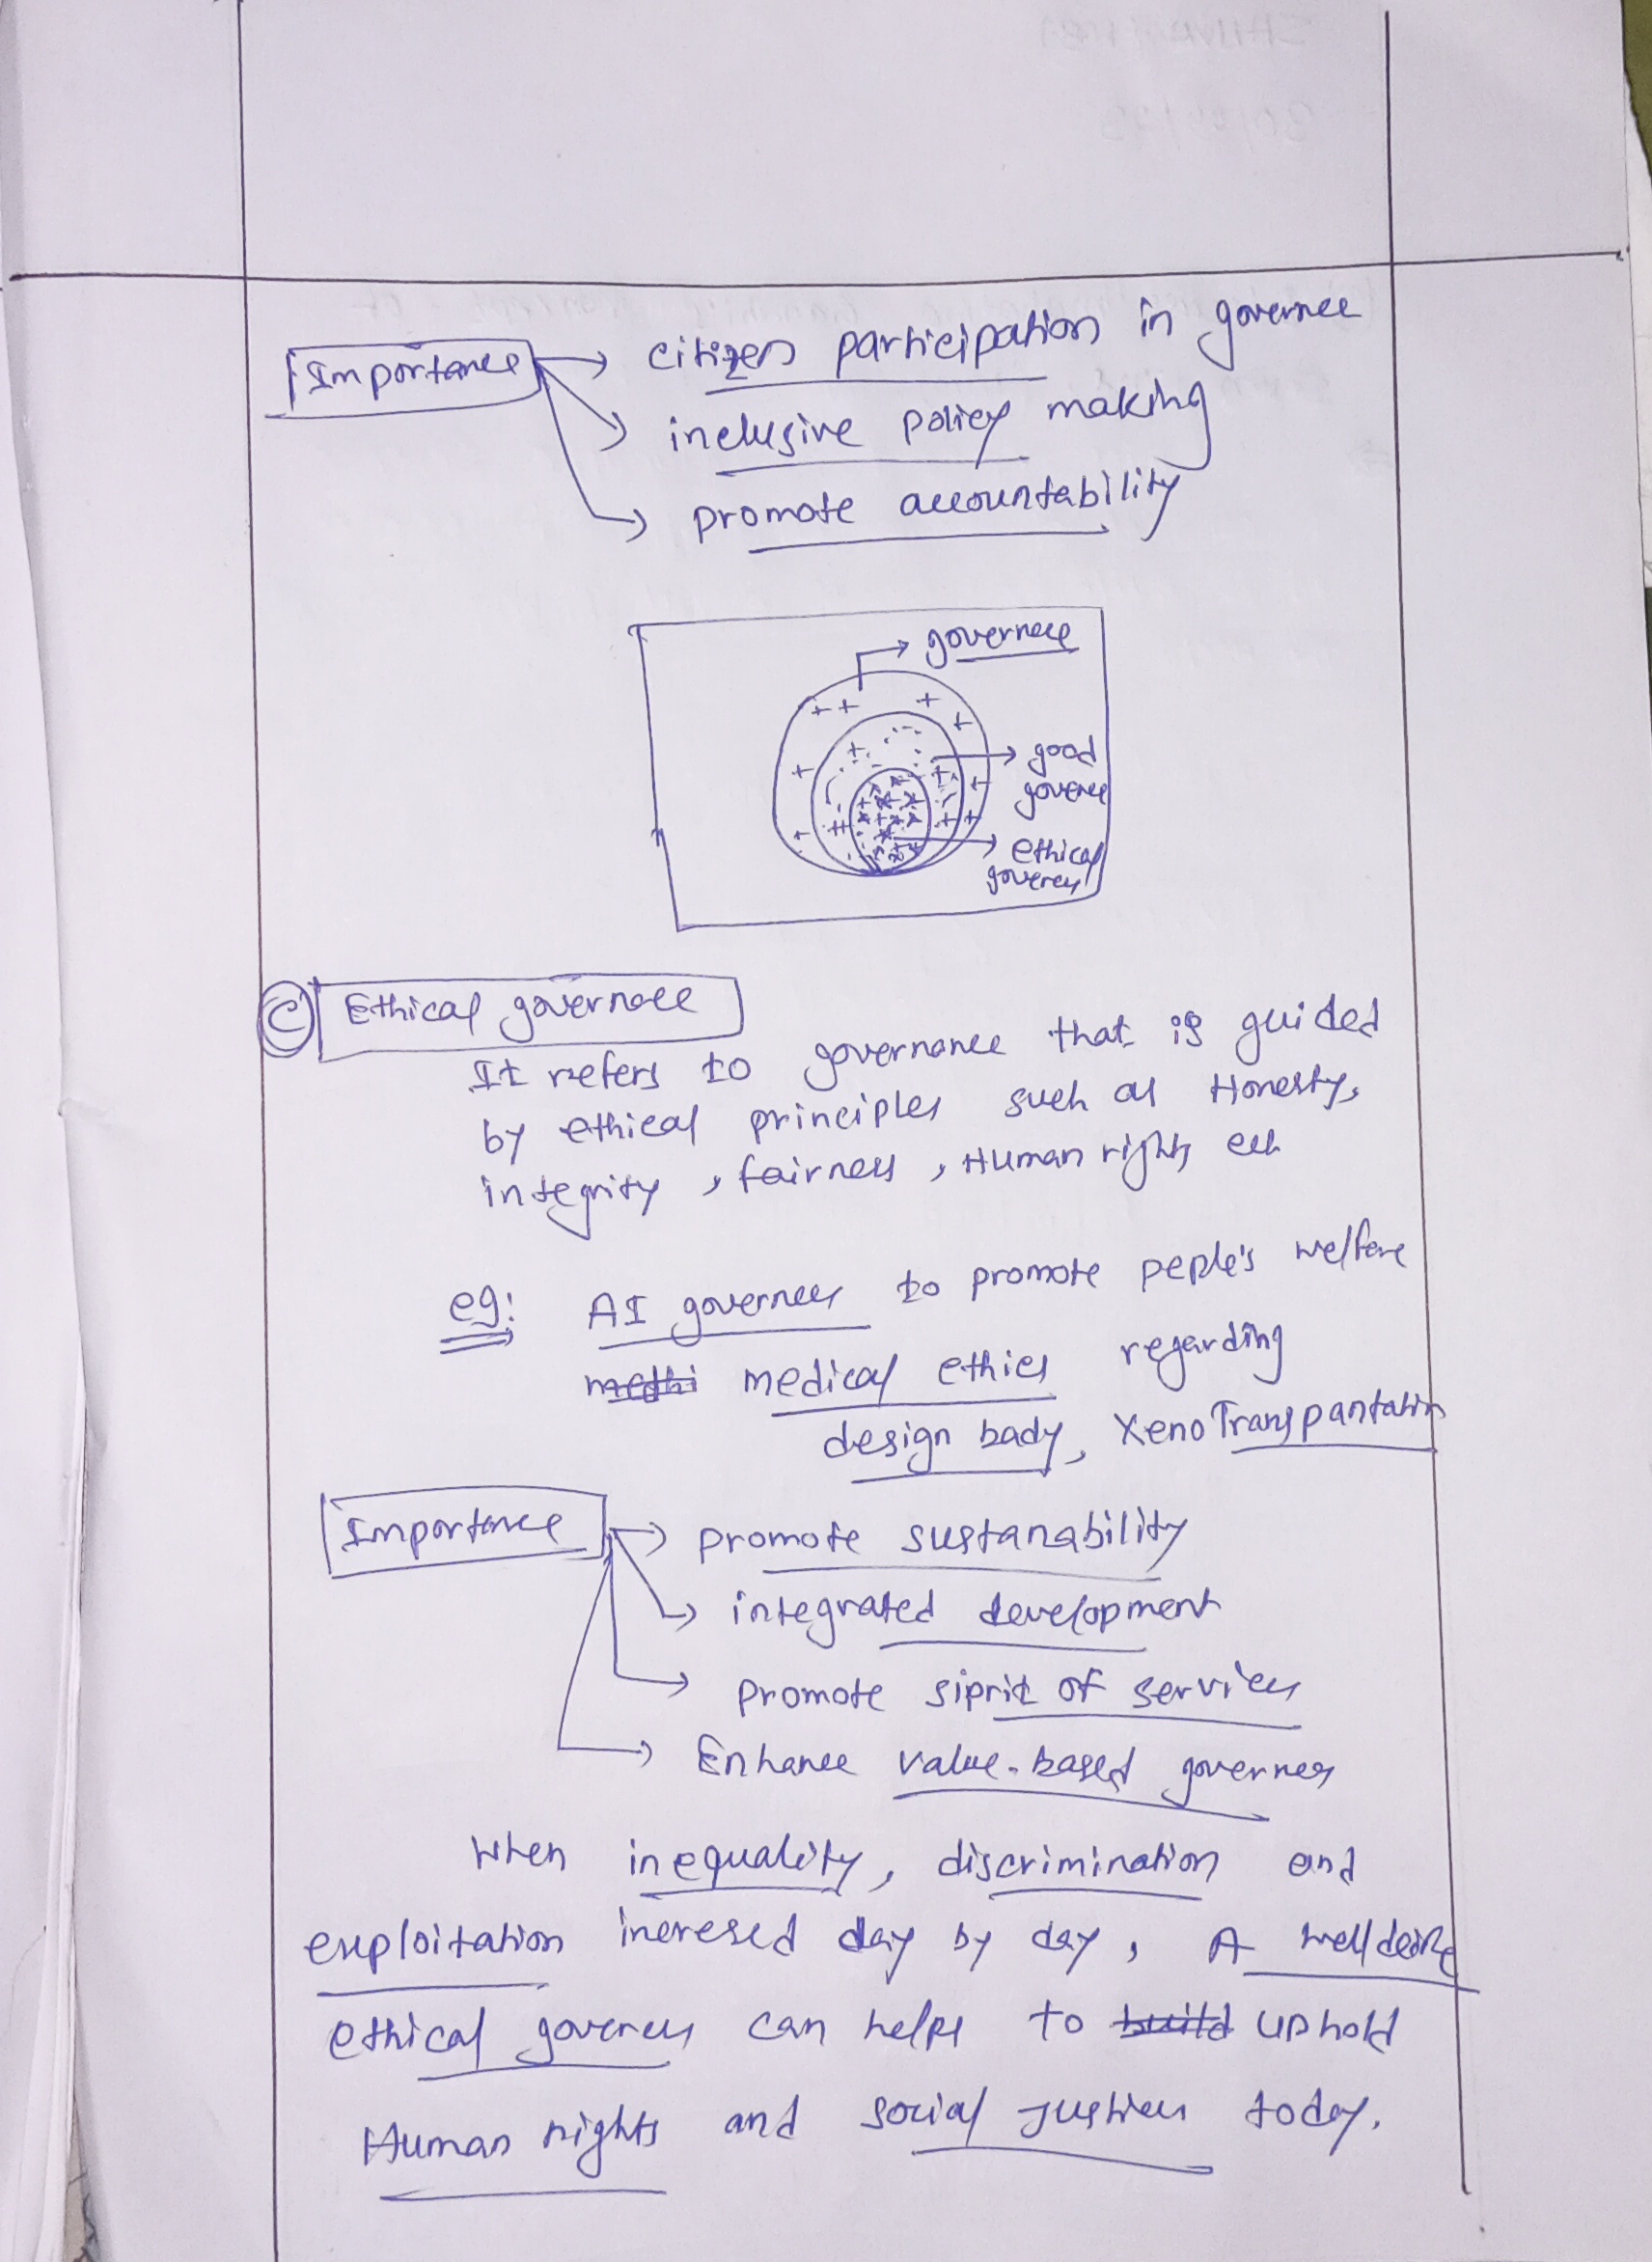 Importance → citizen participation in governce
→ inclusive policy making
→ promote accountability
→ governece
→ good
governce
→ ethical
goverency
(C) Ethical governace
It refers to governance that is guided
by ethical principles such as Honesty,
integrity, fairness, Human rights etc
eg: AI governces to promote peple's welfare
medhi medical ethics regarding
design bady, XenoTranspantatin
Importance → promote sustanability
→ integrated development
→ promote siprit of services
→ Enhance value-based governes
When inequality, discrimination and
exploitation incresed day by day, A well
ethical governes can helps to build uphold
Human rights and social justices today.